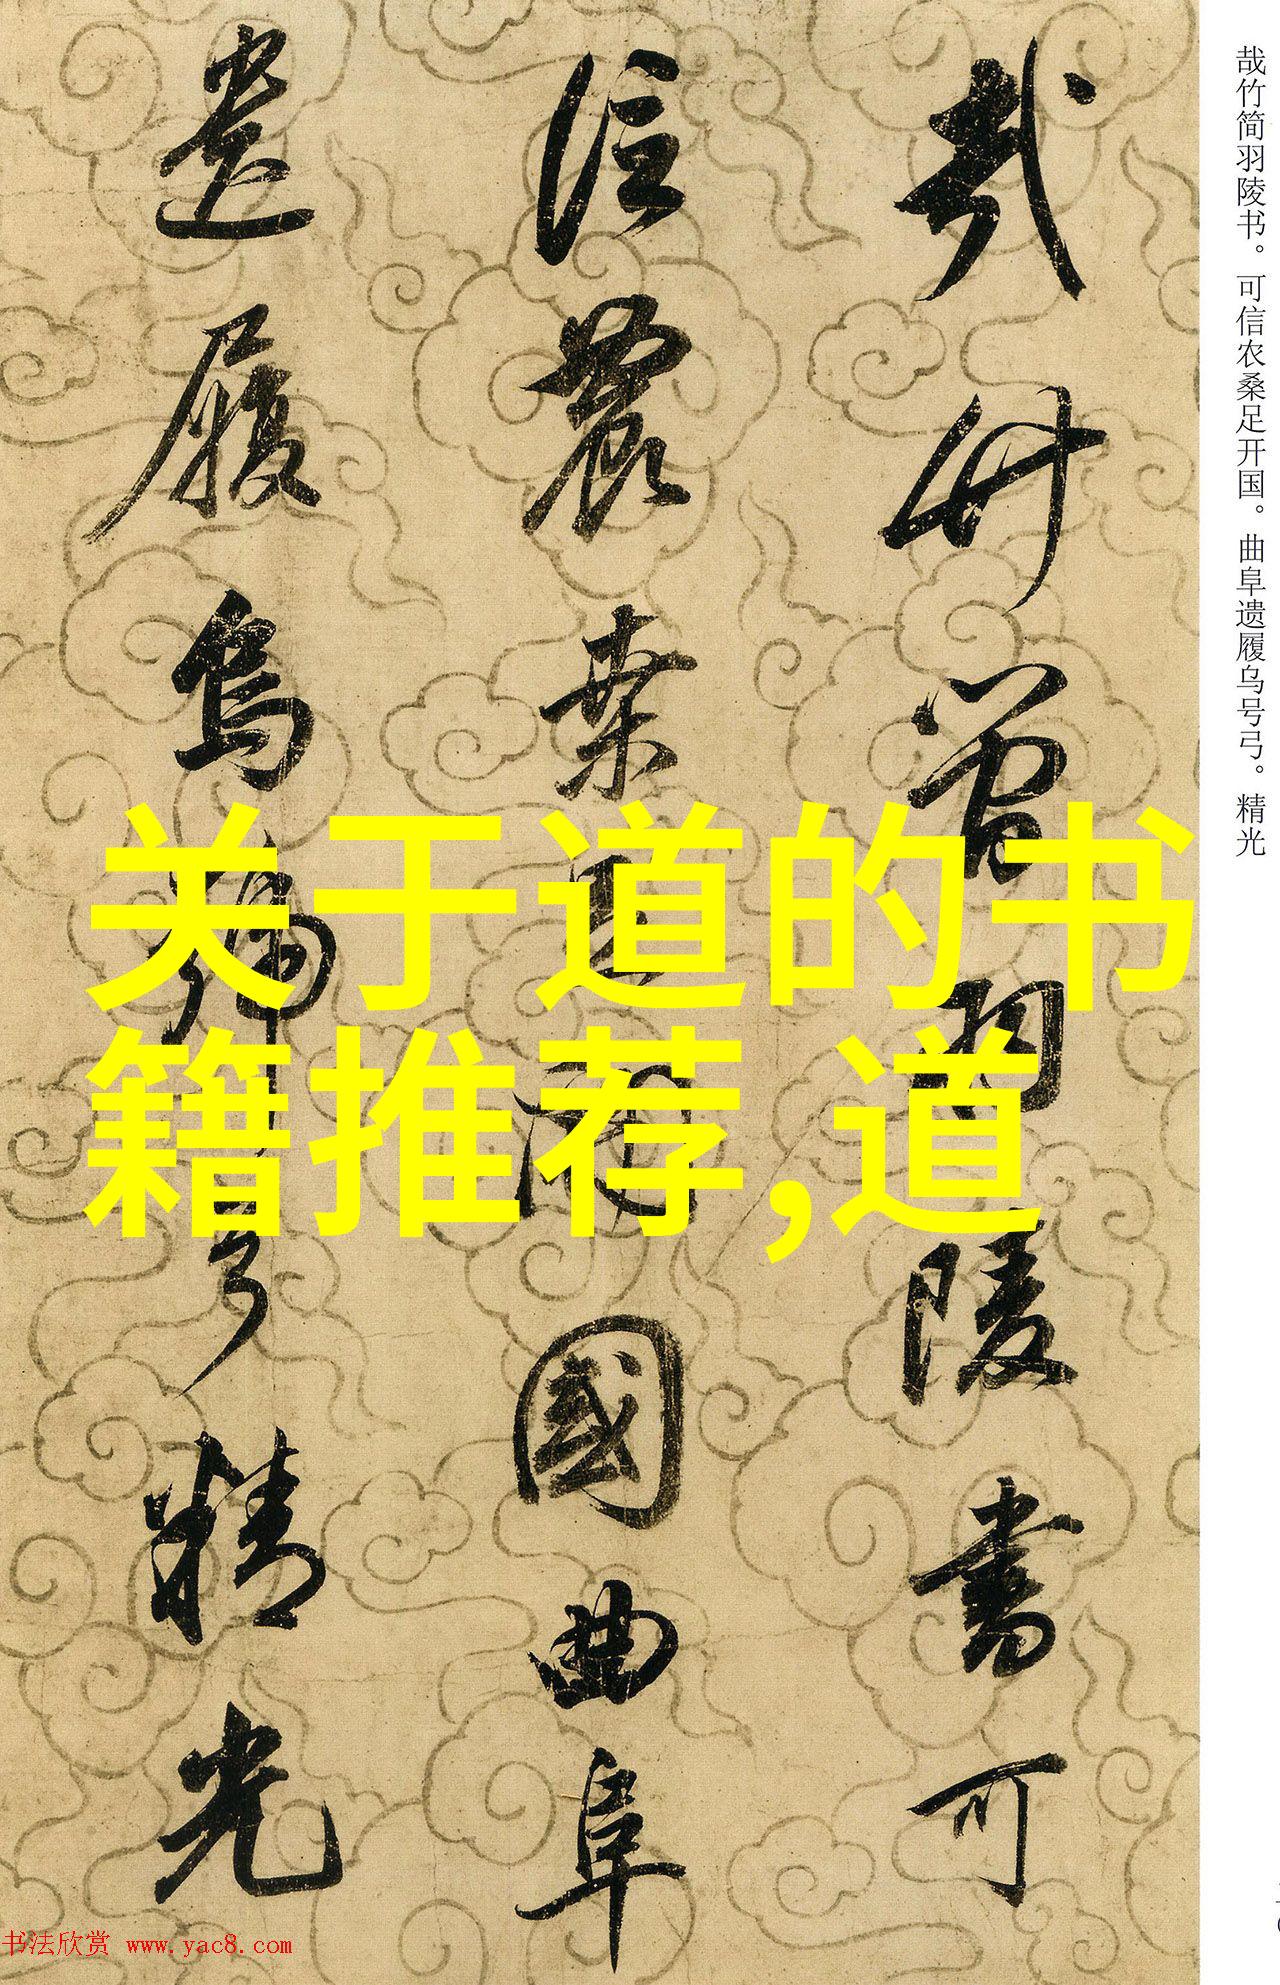 遗履乌号弓精光
信农桑足开国曲阜
哉竹简羽陵书可
哉竹简羽陵书。可信农桑足开国。曲阜遗履乌号弓。精光
关于道的书
籍推荐,道
书法欣赏 www.yac8.com